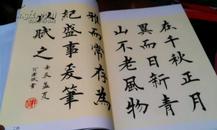 在千秋正月
異而日新青
山不老風物
而常存為
紀盛事爰筆
賦之